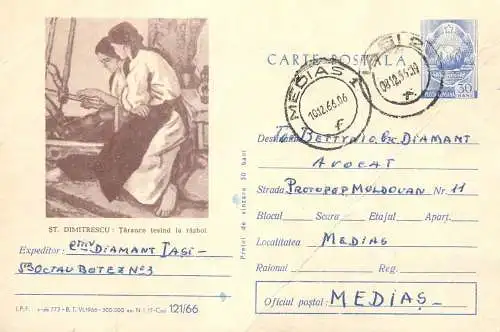 CARTE POSTALA
30
BANI
MEDIAS 1
10.12.66.06
08.12.66.09
Destinatar BETTY și Osc DIAMANT
AVOCAT
Strada PROTOPOP MOLDOVAN Nr. 11
Blocul Scara Etajul Apart.
Localitatea MEDIAS
Raional Reg.
Oficiul poștal: MEDIAȘ
Prețul de vînzare 30 bani
ȘT. DIMITRESCU: Țărance țesînd la război
Expeditor: DIAMANT IASI-
OCTAV BOTEZ No 3
I.P.F. 773 - B.T. VI.1966 - 300.000 ex. Cod 121/66